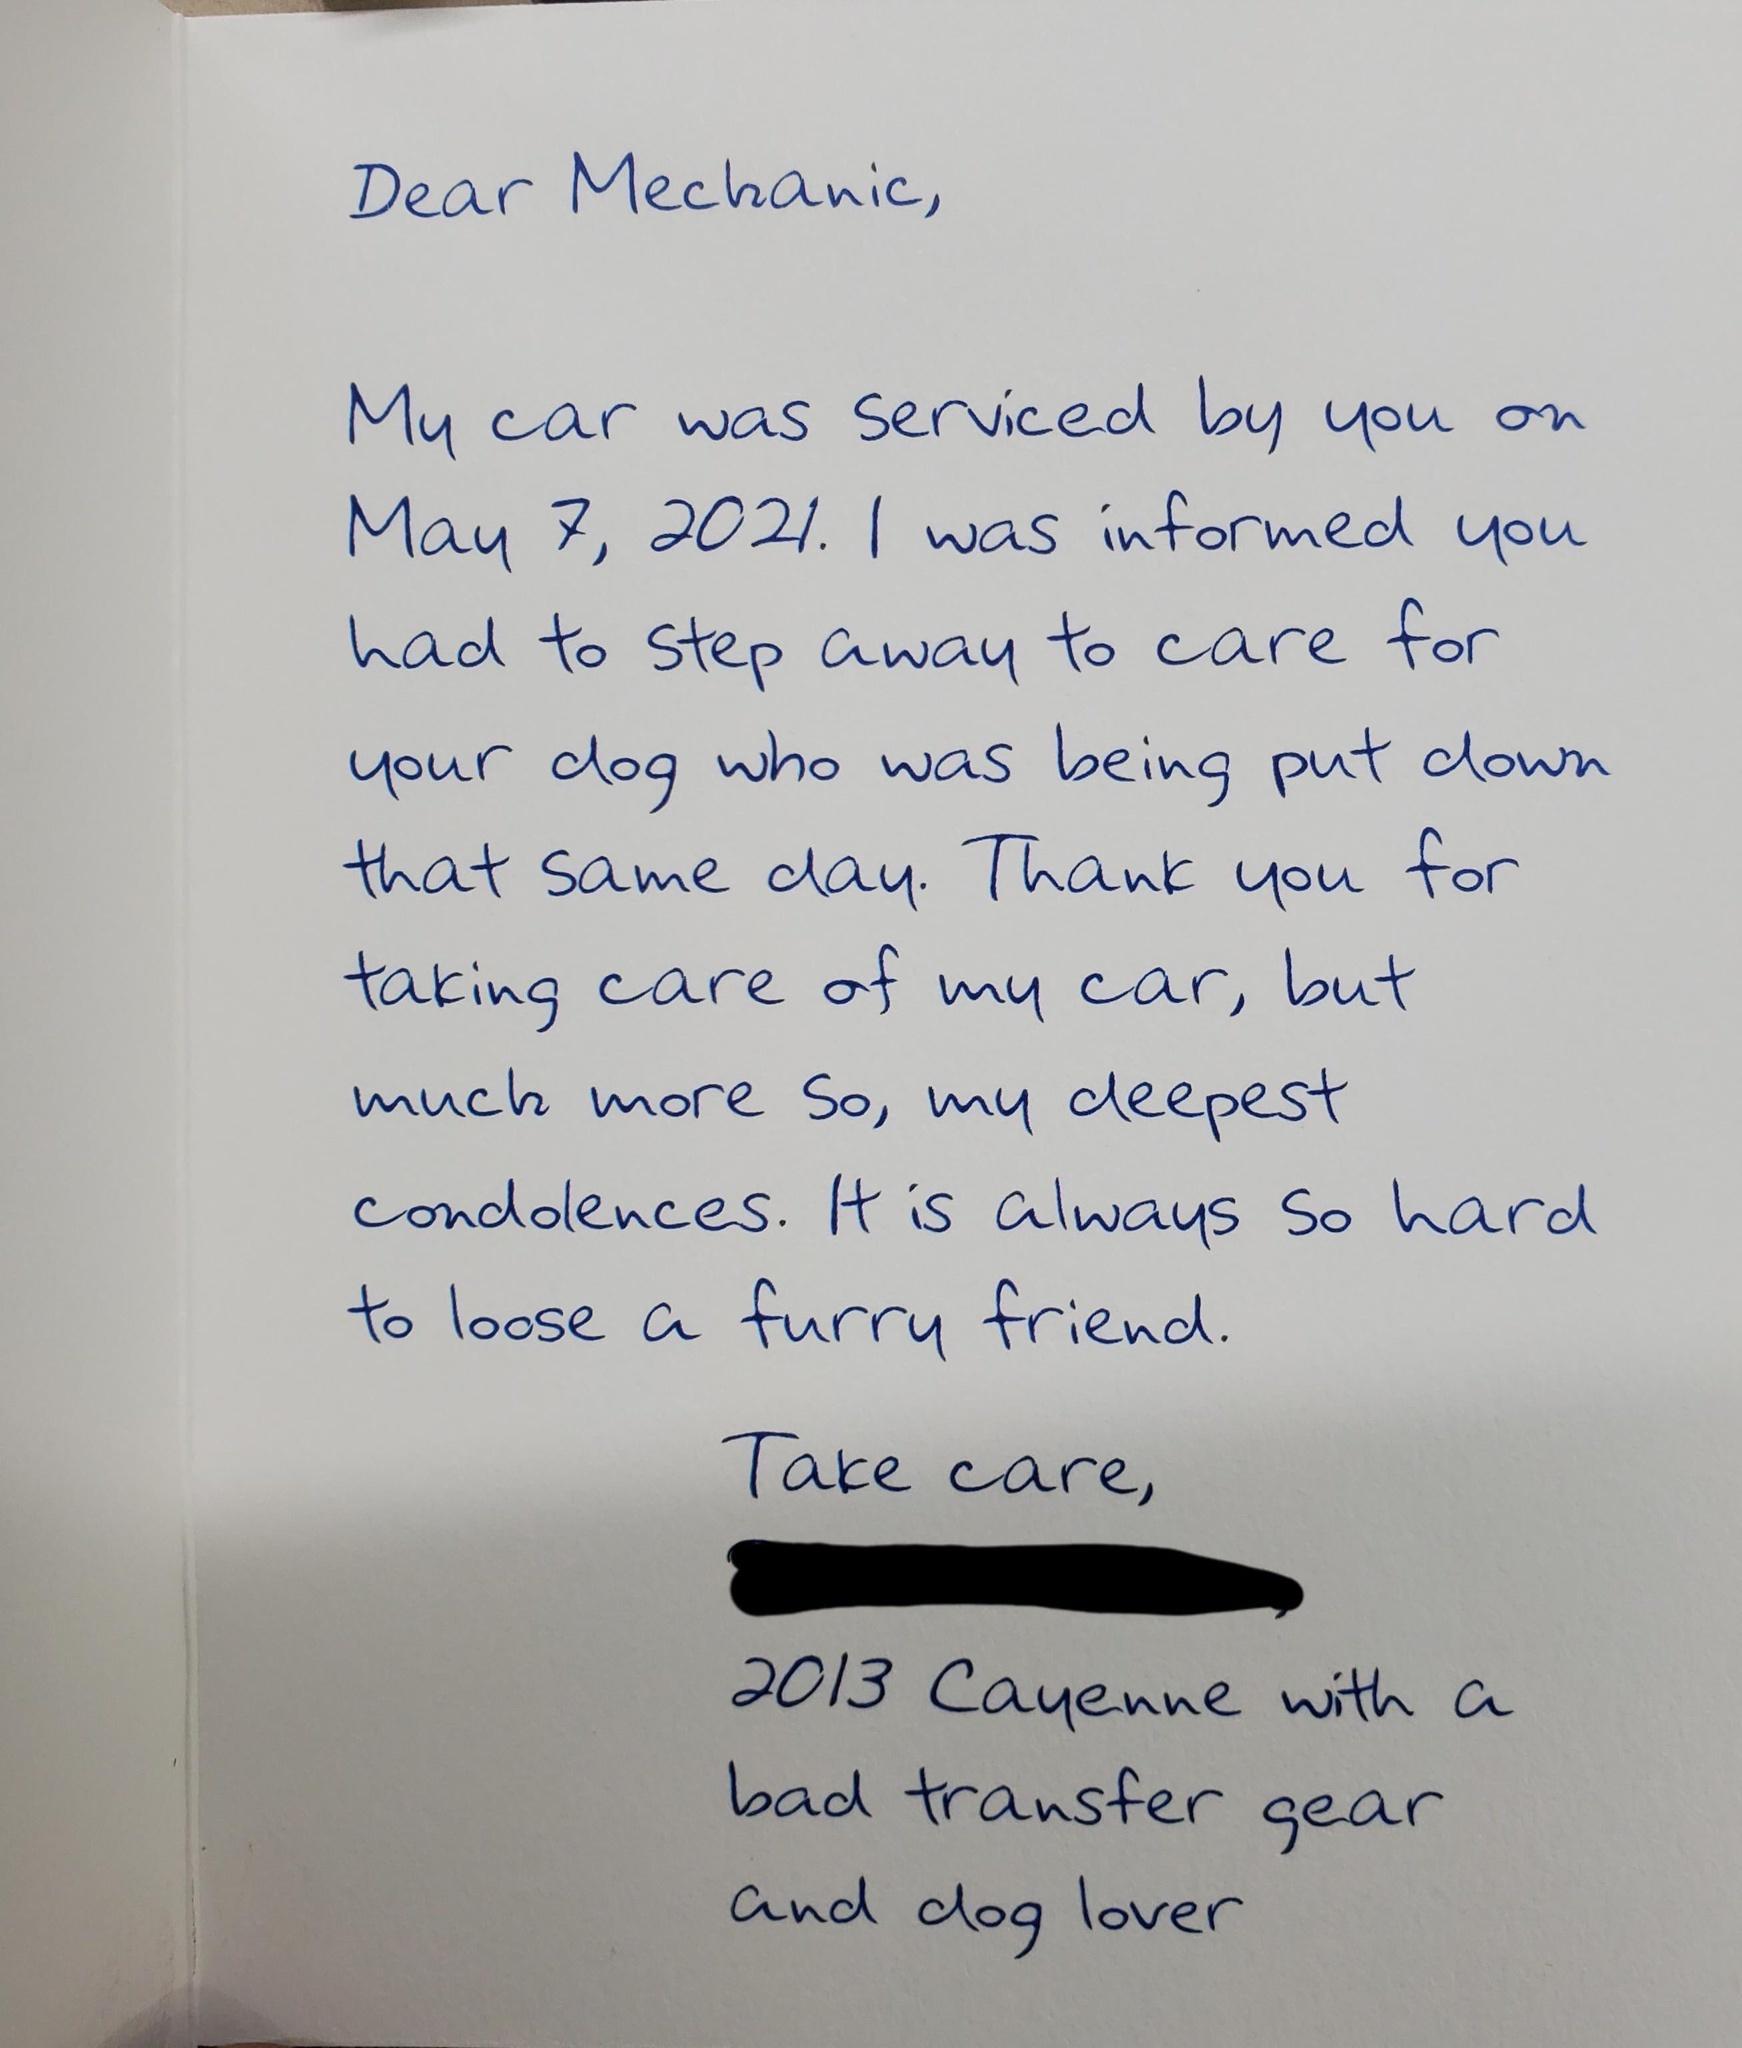 Dear Mechanic,
My car was serviced by you on
May 7, 2021. I was informed you
had to step away to care for
your dog who was being put down
that same day. Thank you for
taking care of my car, but
much more so, my deepest
condolences. It is always so hard
to loose a furry friend.
Take care,
2013 Cayenne with a
bad transfer gear
and dog lover